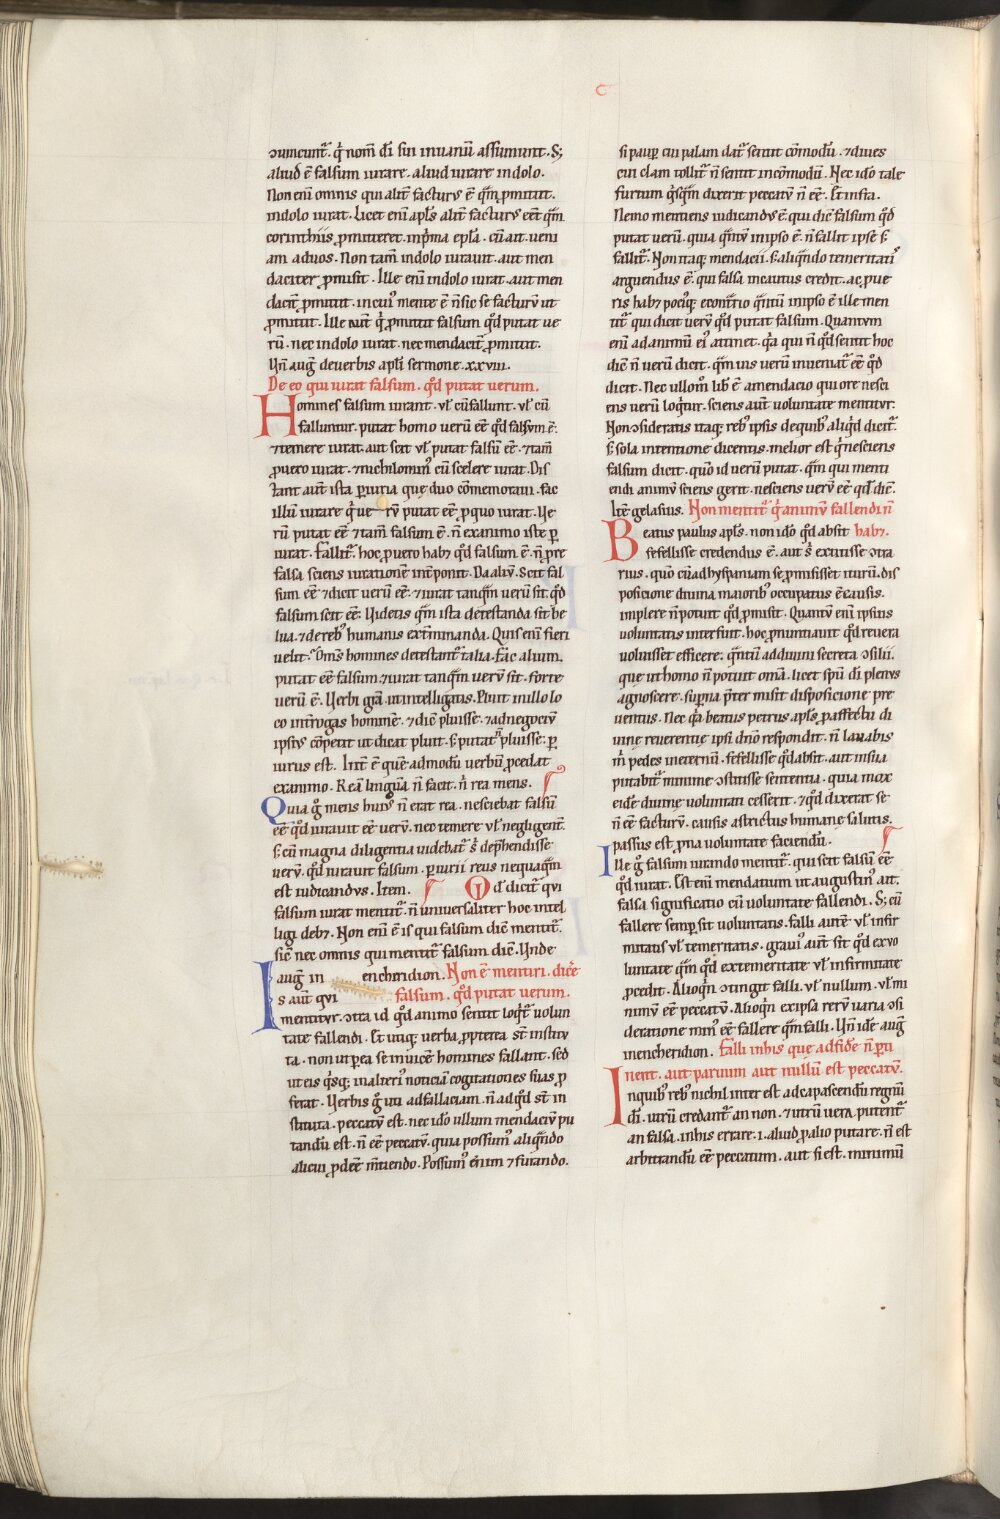 c
ɔuincunt̄. q̄ nom̄ dī sui inuanū assumunt. S;
aliud ē falsum iurare. aliud iurare in dolo.
Non enī omnis qui alit̄ facturꝰ ē q̄m ꝓmittit.
indolo iurat. Licet enī apl̄s alit̄ facturꝰ eēt q̄m
corinthiis ꝓmitteret. inp̄ma epl̄a. cū ait. ueni
am aduos. Non tam̄ indolo iurauit. aut men
daciter ꝓmisit. Ille enī indolo iurat. aut men
dacit̄ ꝓmittit. in cuiꝰ mente ē n̄ sic se facturū ut
ꝓmittit. Ille aut̄ q̄ ꝓmittit falsum qd̄ putat ue
rū. nec indolo iurat. nec mendacit̄ ꝓmittit.
Un̄ auḡ de uerbis apl̄i sermone. xxviii.
De eo qui iurat falsum. qd̄ putat uerum.
Homines falsum iurant. ul̄ cū fallunt. ul̄ cū
falluntur. putat homo uerū eē qd̄ falsum ē.
⁊ temere iurat. aut scit ul̄ putat falsū eē. ⁊ tam̄
ꝓ uero iurat. ⁊ nichilominꝰ cū scelere iurat. Dis
tant aut̄ ista ꝑiuria que duo cōmemoraui. fac
illū iurare q̄ ue rū putat eē ꝓ quo iurat. Ue
rū putat eē ⁊ tam̄ falsum ē. n̄ exanimo iste ꝑ
iurat. fallit̄. hoc ꝓ uero habꝫ qd̄ falsum ē. n̄ ꝓ re
falsa sciens iurationē int̄ponit. Da aliū. Scit fal
sum eē ⁊ dicit uerū eē. ⁊ iurat tanq̄m uerū sit. qd̄
falsum scit eē. Uidetis q̄m ista detestanda sit be
lua. ⁊ de rebꝰ humanis ext̄minanda. Quis enī fieri
uelit. Om̄s homines detestant̄ talia. Fac alium.
putat eē falsum. ⁊ iurat tanq̄m uerū sit. ⁊ forte
uerū ē. Uerbi grā. ut intelligatis. Pluit in illo lo
co int̄rogas hominē. ⁊ dic̄ pluisse. ⁊ ad negociū
ipsiꝰ cōpetit ut dicat pluit. s; putat n̄ pluisse. ꝑ
iurus est. Int̄ ē quē admodū uerbū ꝓcedat
exanimo. Reā linguā n̄ facit. n̄ rea mens.
Quia g̊ mens huiꝰ n̄ erat rea. nesciebat falsū
eē qd̄ iurauit eē uerū. nec temere ul̄ negligent̄.
s; cū magna diligentia uidebat̄ s; dep̄hendisse
uerū. qd̄ iurauit falsum. ꝑiurii reus nequaq̄m
est iudicandus. Item. Qd̄ dicit̄ qui
falsum iurat mentit̄. n̄ uniuersaliter hoc intel
ligi debꝫ. Non enī ē is qui falsum dic̄ mentit̄.
sic̄ nec omnis qui mentit̄ falsum dic̄. Unde
auḡ in enchiridion. Non ē mentiri. dic̄e
Is aut̄ qui falsum. qd̄ putat uerum.
mentitur. ɔtra id qd̄ animo sentit loqt̄ uolun
tate fallendi. Et utiq; uerba ꝓpterea st̄ institu
ta. non ut ꝑ ea se inuicē homines fallant. sed
ut eis q̄sq; inalteriꝰ noticiā cogitationes suas ꝓ
ferat. Uerbis g̊ uti ad fallaciam. n̄ ad qd̄ st̄ in
stituta. peccatū est. nec idō ullum mendaciū pu
tandū est. n̄ eē peccatū. quia possumꝰ aliq̄ndo
alicui ꝓdēē m̄tiendo. Possumꝰ enim ⁊ furando.
si pauꝑ cui palam dat̄ sentit cōmodū. ⁊ diues
cui clam tollit̄ n̄ sentit incōmodū. Nec idō tale
furtum q̄sq̄m dixerit peccatū n̄ eē. Et infra.
Nemo mentiens iudicandꝰ ē. qui dic̄ falsum qd̄
putat uerū. quia q̄ntū inipso ē. n̄ fallit ipse s;
fallit̄. Non itaq; mendacii. s; aliq̄ndo temeritatis
arguendus ē. qui falsa incautus credit. ac ꝓ ue
ris habꝫ pociꝰq; econt̄rio q̄ntū inipso ē ille men
tit̄ qui dicit uerū qd̄ putat falsum. Quantum
enī ad animū eiꝰ attinet. q̄a qui n̄ qd̄ sentit hoc
dic̄ n̄ uerū dicit. q̄m uis uerū inueniat̄ eē qd̄
dicit. Nec ullomꝰ lib̄ ē amendacio qui ore nesci
ens uerū loqtur. sciens aut̄ uoluntate mentitur.
Non ɔsideratis itaq; rebꝰ ipsis de quibꝰ aliqd̄ dicit̄.
s; sola intentione dicentis. melior est q̄ nesciens
falsum dicit. quō id uerū putat. q̄m qui menti
endi animū sciens gerit. nesciens uerū eē qd̄ dic̄.
Itē gelasius. Non mentit̄ q̄ animū fallendi n̄
Beatus paulus apl̄s. non idō qd̄ absit habꝫ.
fefellisse credendus ē. aut s; extitisse ɔtra
rius. quō cū ad hyspaniam se ꝓmisisset iturū. dis
posicione diuina maioribꝰ occupatus ē causis.
implere n̄ potuit qd̄ ꝓmisit. Quantū enī ipsius
uoluntatis interfuit. hoc ꝓnuntiauit qd̄ reuera
uoluisset efficere. q̄ntū ad diuini secreta ɔsilii.
que ut homo n̄ potuit om̄a. licet spū dī plenus
agnoscere. suꝑna p̄ter misit disposicione pre
uentus. Nec q̄a beatus petrus apl̄s ꝓ affectu di
uine reuerentie ipsi dn̄o respondit. n̄ lauabis
m̄ pedes ineternū. fefellisse qd̄ absit. aut in sua
putabit̄ minime ɔstitisse sententia. quia mox
eidē diuine uoluntati cesserit. ⁊ qd̄ dixerat se
n̄ eē facturū. causis astrictus humane salutis.
passus est. ꝓna uoluntate faciendū.
Ille g̊ falsum iurando mentit̄. qui scit falsū eē
qd̄ iurat. Est enī mendatium ut augustinꝰ ait.
falsa significatio cū uoluntate fallendi. S; cū
fallere semꝑ sit uoluntatis. falli autē ul̄ infir
mitatis ul̄ temeritatis. grauiꝰ aut̄ sit qd̄ ex uo
luntate q̄m qd̄ ex temeritate ul̄ infirmitate
ꝓcedit. Alioq̄n ɔtingit falli. ul̄ nullum. ul̄ mi
nimū eē peccatū. Alioq̄n ex ipsa rerū uaria ɔsi
deratione minꝰ eē fallere q̄m falli. Un̄ idē auḡ
inencheridion. Falli inhis que ad fidē n̄ ꝑti
nent. aut paruum aut nullū est peccatū.
Inquibꝰ rebꝰ nichil inter est ad capascendū regnū
dī. utrū credant̄ an non. ⁊ utrū uera putent̄
an falsa. inhis errare. i. aliud ꝓ alio putare. n̄ est
arbitrandū eē peccatum. aut si est. minimū